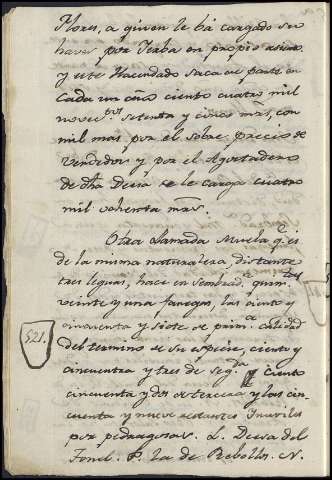 Flores, a quien le ha cargado su
haver por Yerba en propio
y este Hacendado saca de parte en
Cada un año ciento cuatro mil
novec.tos setenta y cinco mrs, con
mil mas, por el sobre precio de
vendedor, y por el Agostadero
de dha Deesa se le carga cuatro
mil ochenta mrs.
Otra llamada Muela q.e es
de la misma naturaleza, distante
tres leguas, hace en sembrad.a quin.tas
veinte y una fanegas, las ciento y
cincuenta y siete de prim.a calidad
del termino de su especie, ciento y
cincuenta y tres de seg.da ciento
cincuenta y dos de tercera y las cin-
cuenta y nueve restantes Inutiles
por pedragosas. L. Deesa del
P. la de Rebollo. N.
521.